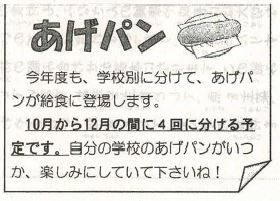 あげパン
今年度も、学校別に分けて、あげパ
ンが給食に登場します。
10月から12月の間に４回に分ける予
定です。自分の学校のあげパンがいつ
か、楽しみにしていて下さいね！